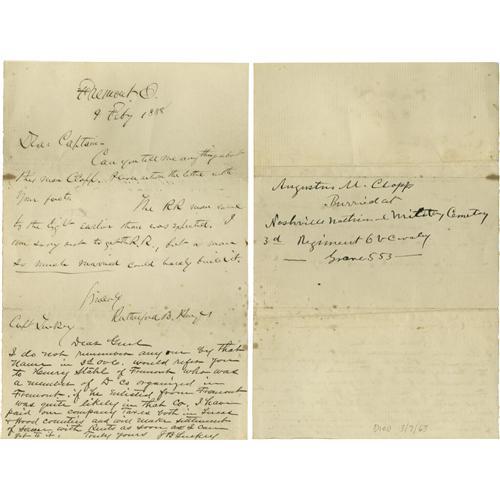 Fremont O.
9 Feby 1888
Dear Captain -
Can you tell me anything about
this man Clapp. Please return the letter with
your facts.
The RR man came
to the light earlier than was expected. I
am sorry not to get R.R., but a man
so much married could hardly build it.
Sincerely
Rutherford B. Hayes
Capt Luckey
Dear Genl
I do not remember any one by that
name in 3d OVC. would refer you
to Henry Stahl of Fremont who was
a member of D Co organized in
Fremont. if he enlisted from Fremont
was quite likely in that Co. I have
paid our company taxes both in Lucas
& Wood counties and will make settlement
of same with Ruto as soon as I can
get to it. Truly yours J B Luckey
Augustus M. Clapp
Burried at
Nashville National Military Cemetry
3d Regiment O V Cavaly
Grave 553
Died 3/7/63